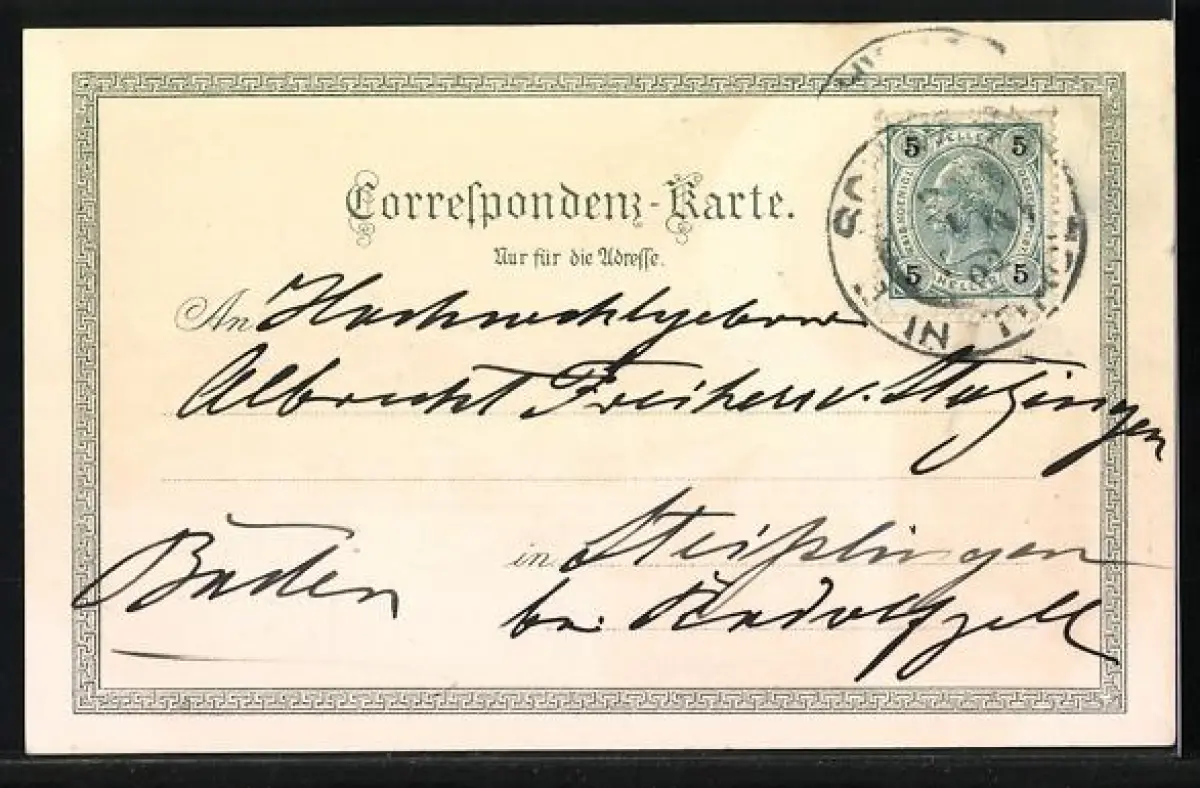 5 HELLER 5
5 HELLER 5
Correspondenz-Karte.
Nur für die Adresse.
An Hochwohlgeboren
Albrecht Freiherr v. Stotzingen
in Steißlingen
Baden
bei Radolfzell